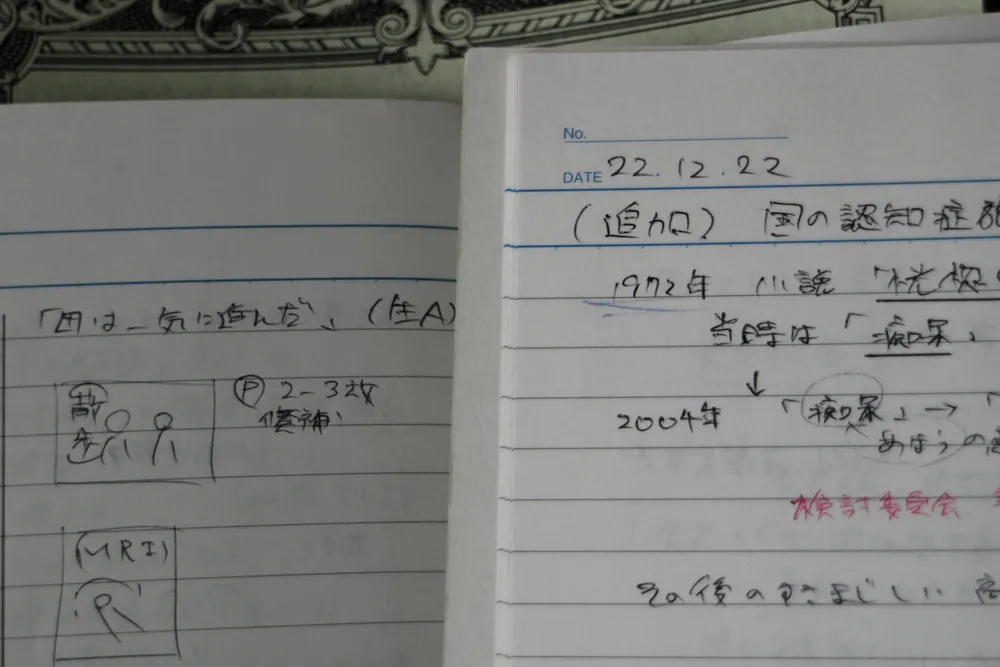 「国は一気に進んだ」(生A)
散歩
Ⓟ 2-3枚
候補
(MRI)
No.
DATE 22.12.22
(追加) 国の認知症
1972年 小説 「恍惚
当時は「痴呆」
↓
2004年 「痴呆」→「
あほうの
検討委員会
その後のすさまじい 高